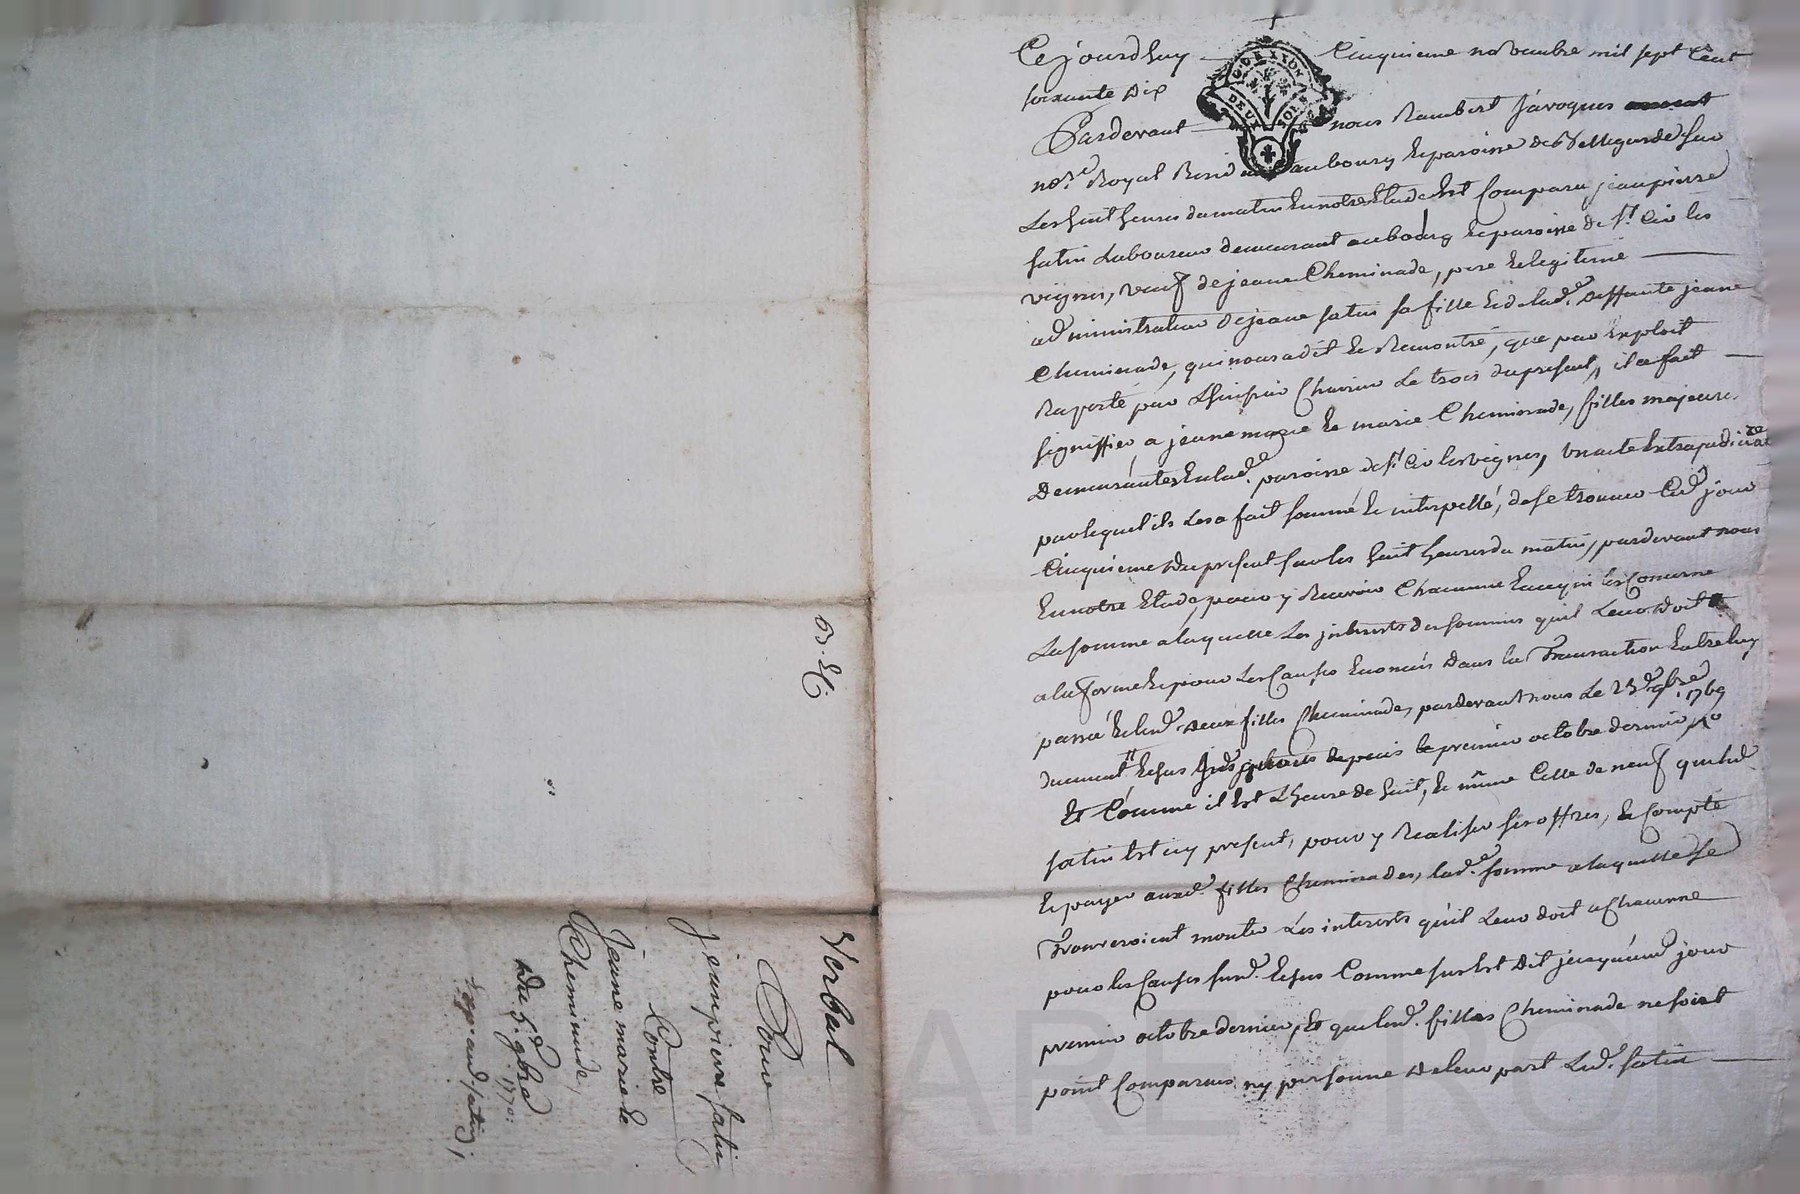 Ce jourdhuy Cinquieme novembre mil sept Cent
soixante Dix
G. DE LYON
DEUX SOLS
Pardevant nous Rambert Javogues
no.re Royal Resid au faubourg & paroisse de Bellegarde sur
Les huit heures du matin En notre Etude Est Comparu jeanpierre
fatin Laboureur demeurant au bourg & paroisse de St. Cir les
vignes, veuf de jeanne Cheminade, pere & legitime
administrateur de jeanne fatin sa fille & de lad.e deffunte jeanne
Cheminade, qui nous a dit & Remontré, que par Exploit
Raporté par Lhuissier Chavier Le trois du present, il a fait
signiffier a jeanne marie & marie Cheminade, filles majeures
Demeurantes En lad.e paroisse de St Cir les vignes, un acte Extrajudiciaire
par lequel ils Les a fait sommé & interpellé, de se trouver Cejourd
Cinquieme du present sur les huit heures du matin, pardevant nous
En notre Etude, pour y Recevoir Chacunne En ce qui les Concerne
La somme a laquelle Les interests des sommes quil Leur doit
a la forme & pour Les Causes Enoncés Dans la Transaction Entre luy
passé & lesd. deux filles Cheminade, pardevant nous Le 23e 9bre 1769
depuis le premier octobre dernier
Et Comme il Est Lheure de huit, & même Celle de neuf que led
fatin Est icy present, pour y Realiser ses offres, & Compte
& payer auxd. filles Cheminades, lad.e somme a laquelle se
Trouveroient monter Les interests qu'il Leur doit a Chacunne
pour les Causes susd. & sus Comme sus Est Dit jusqu'aud jour
premier octobre dernier, Et que lesd. filles Cheminade ne sont
point Comparues, ny personne de leur part Led. fatin
Verbal
Pour
jeanpierre fatin
Contre
Jeanne marie &
Cheminade,
Du 5.e 9bre 1770.
Exp. aud. fatin,